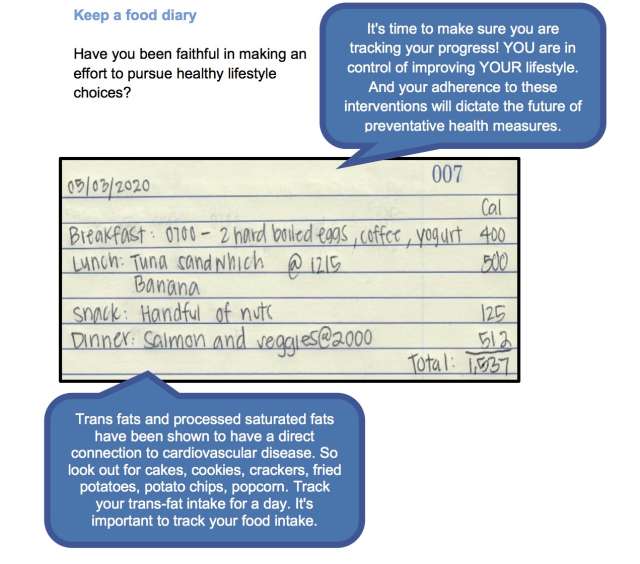 Keep a food diary
Have you been faithful in making an
effort to pursue healthy lifestyle
choices?
It's time to make sure you are
tracking your progress! YOU are in
control of improving YOUR lifestyle.
And your adherence to these
interventions will dictate the future of
preventative health measures.
007
05/03/2020
Cal
Breakfast: 0700 - 2 hard boiled eggs, coffee, yogurt 400
Lunch: Tuna sandwhich @ 1215 500
Banana
Snack: Handful of nuts 125
Dinner: Salmon and veggies@2000 512
Total: 1,537
Trans fats and processed saturated fats
have been shown to have a direct
connection to cardiovascular disease. So
look out for cakes, cookies, crackers, fried
potatoes, potato chips, popcorn. Track
your trans-fat intake for a day. It's
important to track your food intake.